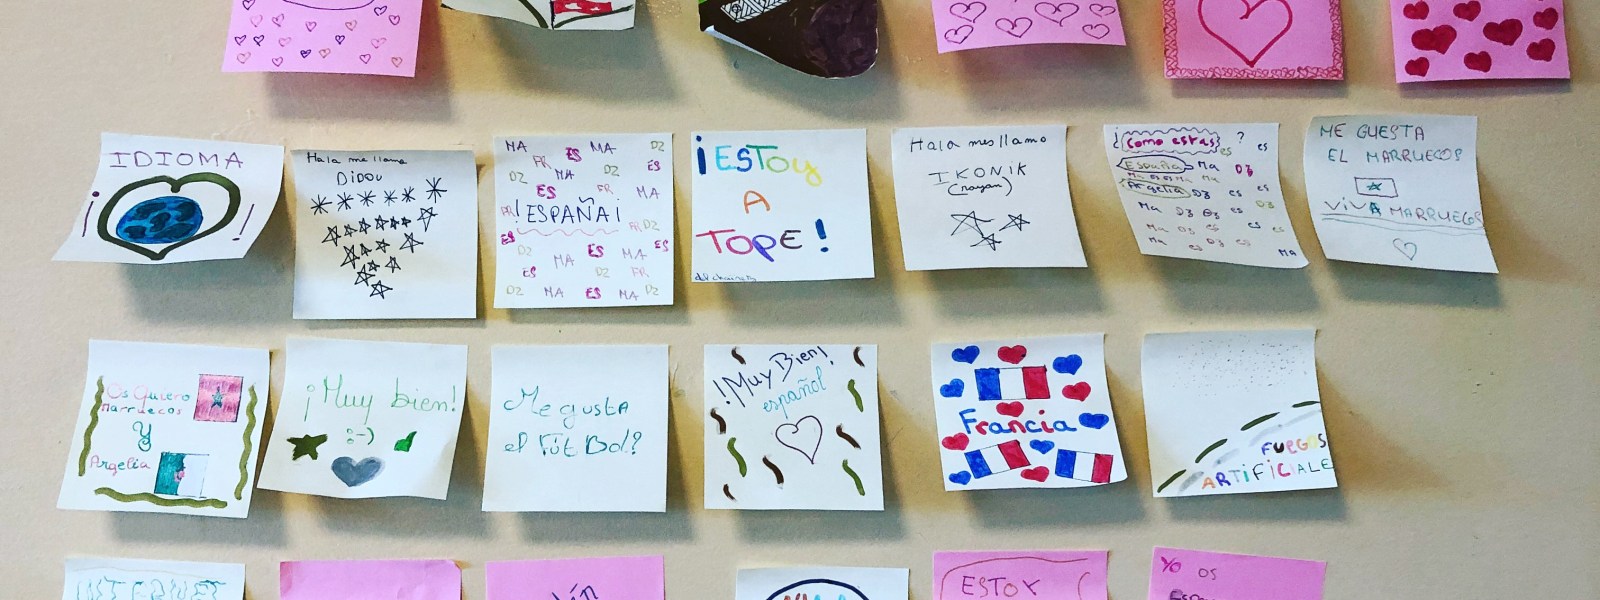 IDIOMA
¡ !
Hala me llamo
DiDOU
MA ES MA DZ
FR ES
DZ MA
ES FR MA
FR
!ESPAÑA¡
FR DZ
ES
DZ ES MA ES
MA
ES DZ FR
DZ MA ES MA DZ
¡ESToy
A
TOPE!
Hala mes llamo
IKONIK
(rayan)
¿Como estas?
es es
España Ma DZ
Argelia DZ es es
Ma DZ DZ es es DZ
Ma DZ es DZ es es
Ma es DZ es
Ma
ME GUESTA
EL MARRUECOS
ViVA MARRUECOS
Os Quiero
Marruecos
Y
Argelia
¡Muy bien!
:-)
Me gusta
el FÚt Bol?
!Muy Bien!
español
Francia
FUEGOS
ARTiFiCiALE
INTERNET
ESTOY
Yo os